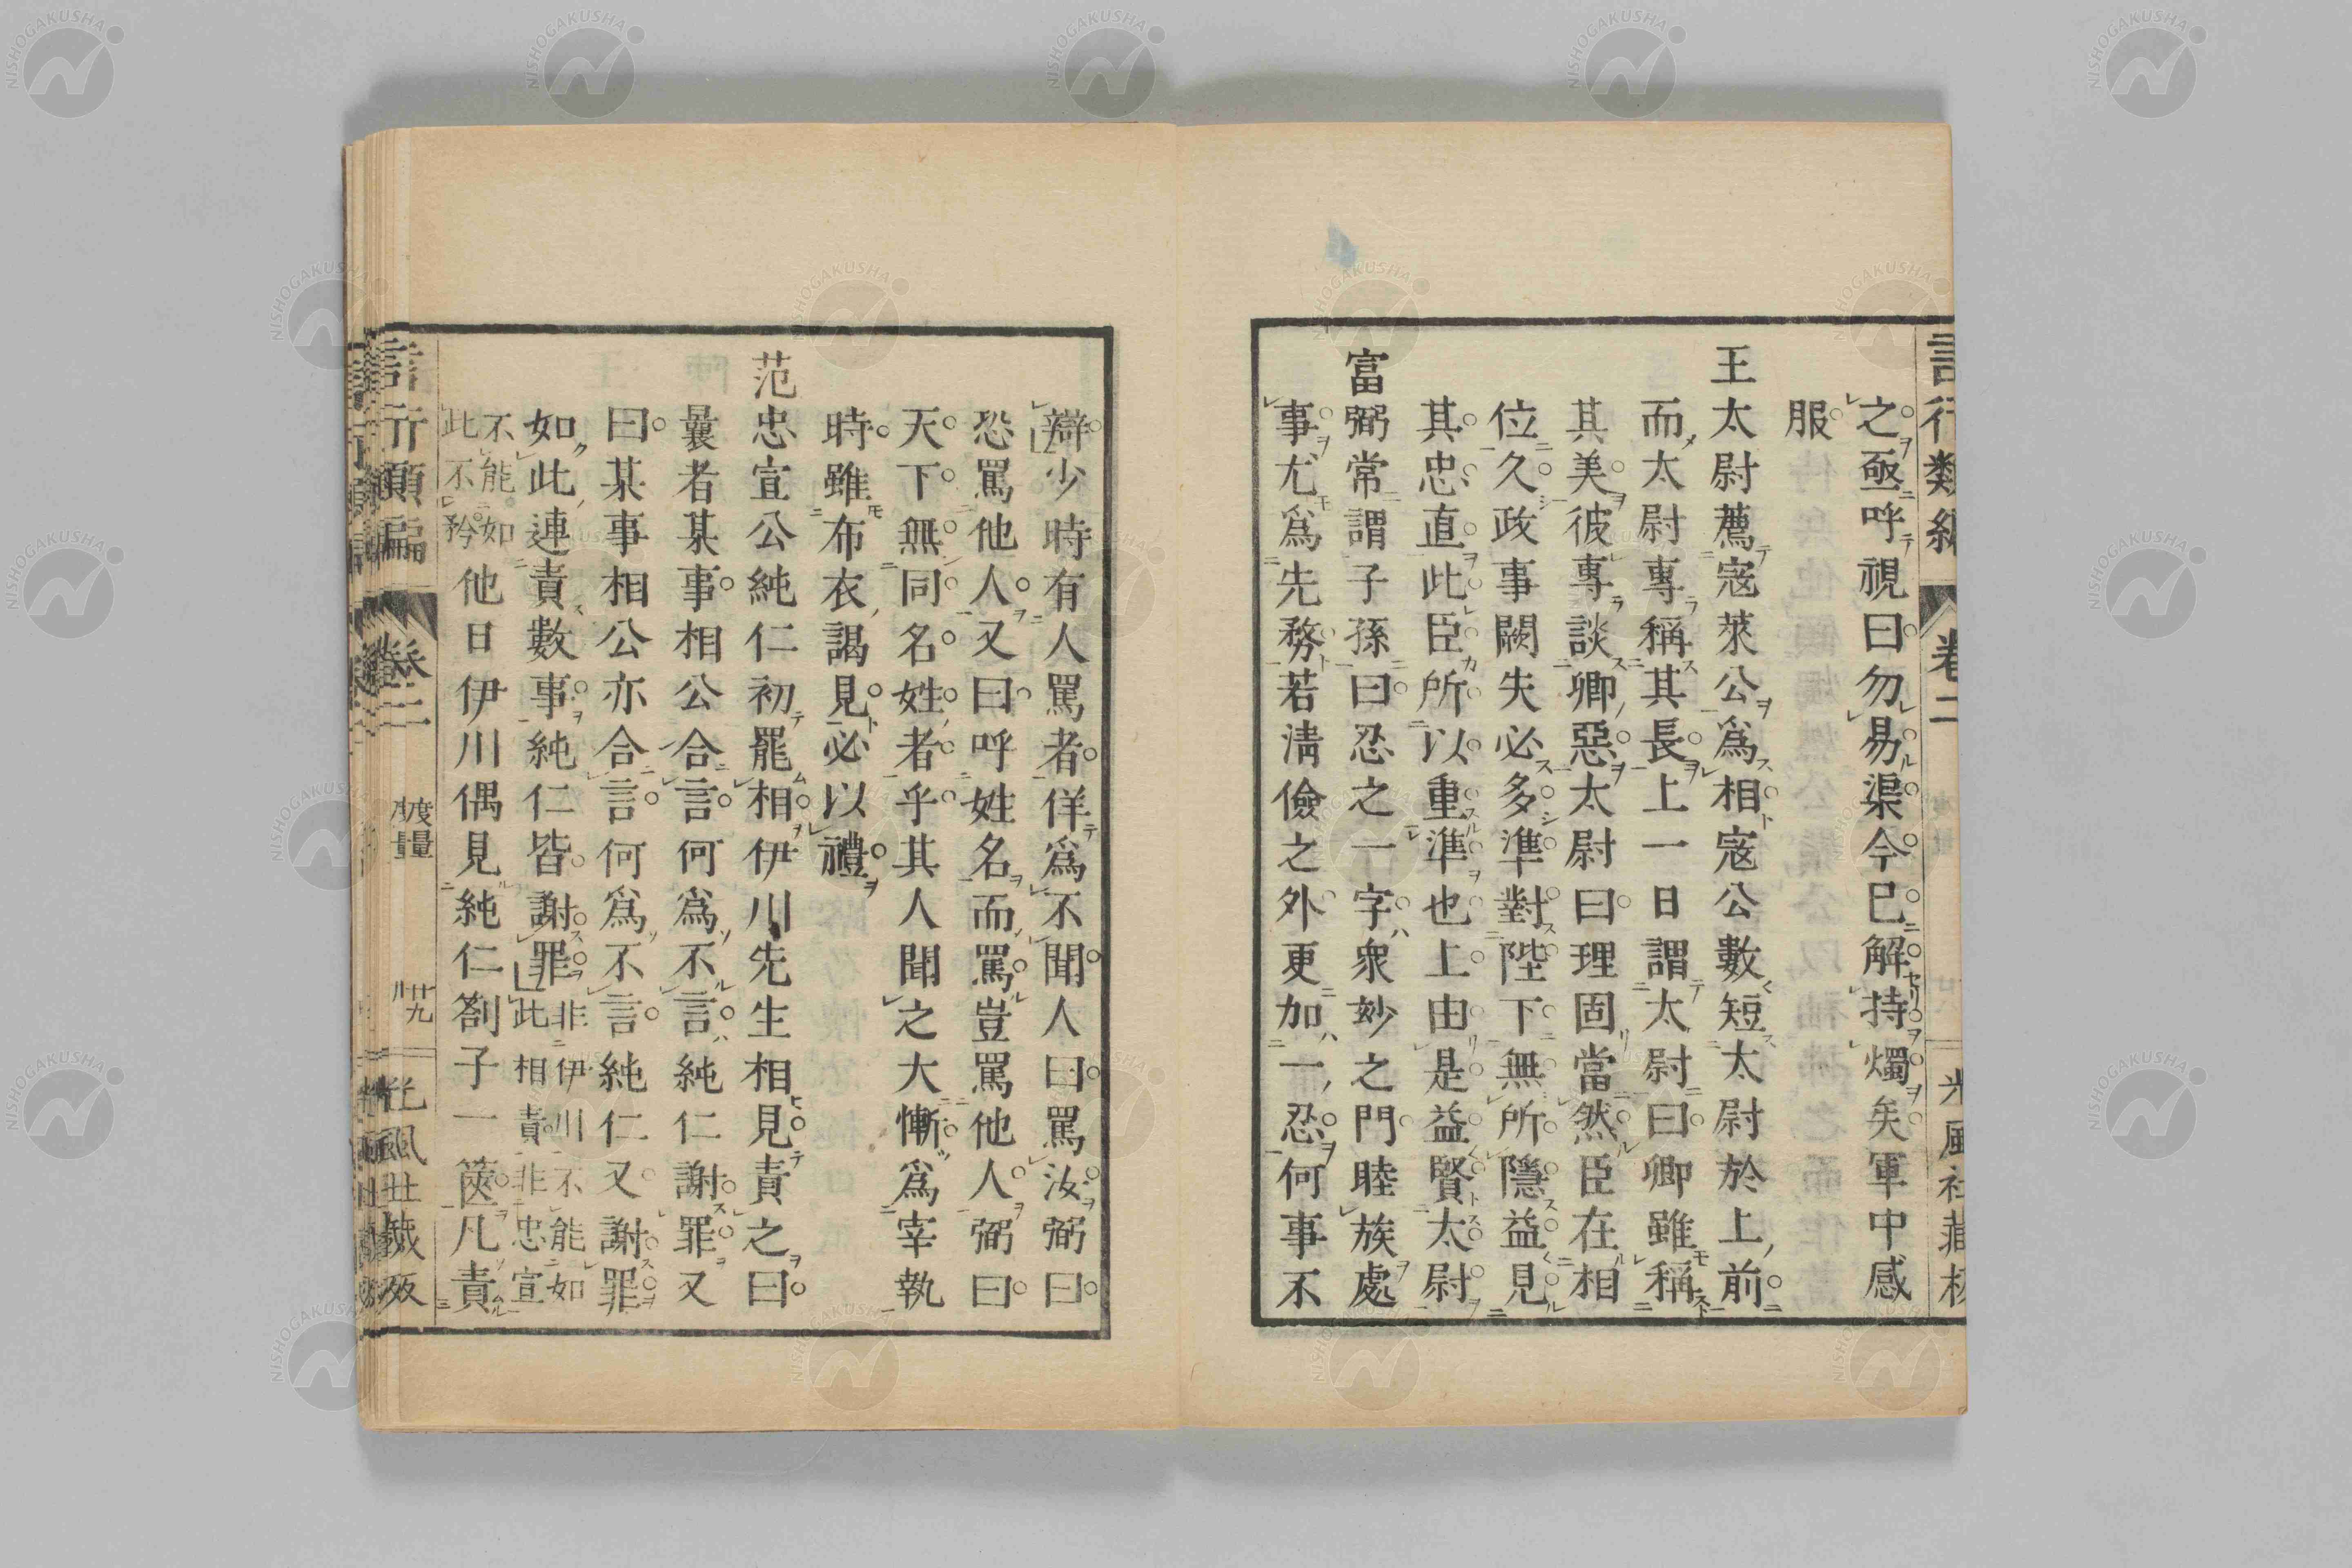 之亟呼視曰勿易渠今已解持燭矣軍中感
服
王太尉薦寇萊公爲相寇公數短太尉於上前
而太尉專稱其長上一日謂太尉曰卿雖稱
其美彼專談卿惡太尉曰理固當然臣在相
位久政事闕失必多準對陛下無所隱益見
其忠直此臣所以重準也上由是益賢太尉
富弼常謂子孫曰忍之一字衆妙之門睦族處
事尤爲先務若淸儉之外更加一忍何事不
辯少時有人罵者佯爲不聞人曰罵汝弼曰
恐罵他人又曰呼姓名而罵豈罵他人弼曰
天下無同名姓者乎其人聞之大慚爲宰執
時雖布衣謁見必以禮
范忠宣公純仁初罷相伊川先生相見責之曰
曩者某事相公合言何爲不言純仁謝罪又
曰某事相公亦合言何爲不言純仁又謝罪
如此連責數事純仁皆謝罪非伊川不能如
此相責非忠宣
不能如
此不矜他日伊川偶見純仁劄子一篋凡責
言行類編 卷二 度量 廿九 光風社藏板
NISHOGAKUSHA